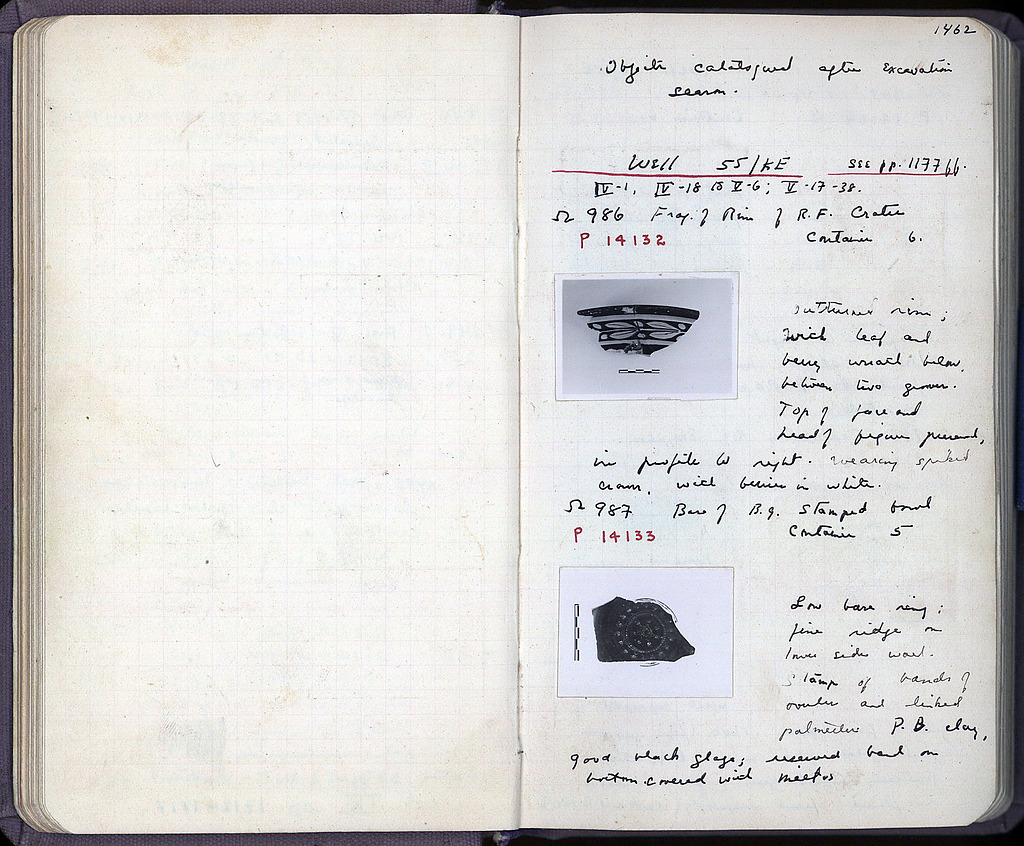 1462
Objects catalogued after Excavation
season.
Well 55/KE see pp. 1177 ff.
IV-1, IV-18 to V-6; V-17-38.
Ω 986 Frag. of Rim of R.F. Crater
P 14132 Container 6.
outturned rim;
with leaf and
berry wreath below,
between two grooves.
Top of face and
head of figure preserved,
in profile to right. wearing spiked
crown, with berries in white.
Ω 987 Base of B.g. Stamped bowl
P 14133 Container 5
Low base ring;
fine ridge on
lower side wall.
Stamp of bands of
ovules and linked
palmettes P.B. clay,
good black glaze; reserved band on
bottom covered with miltos